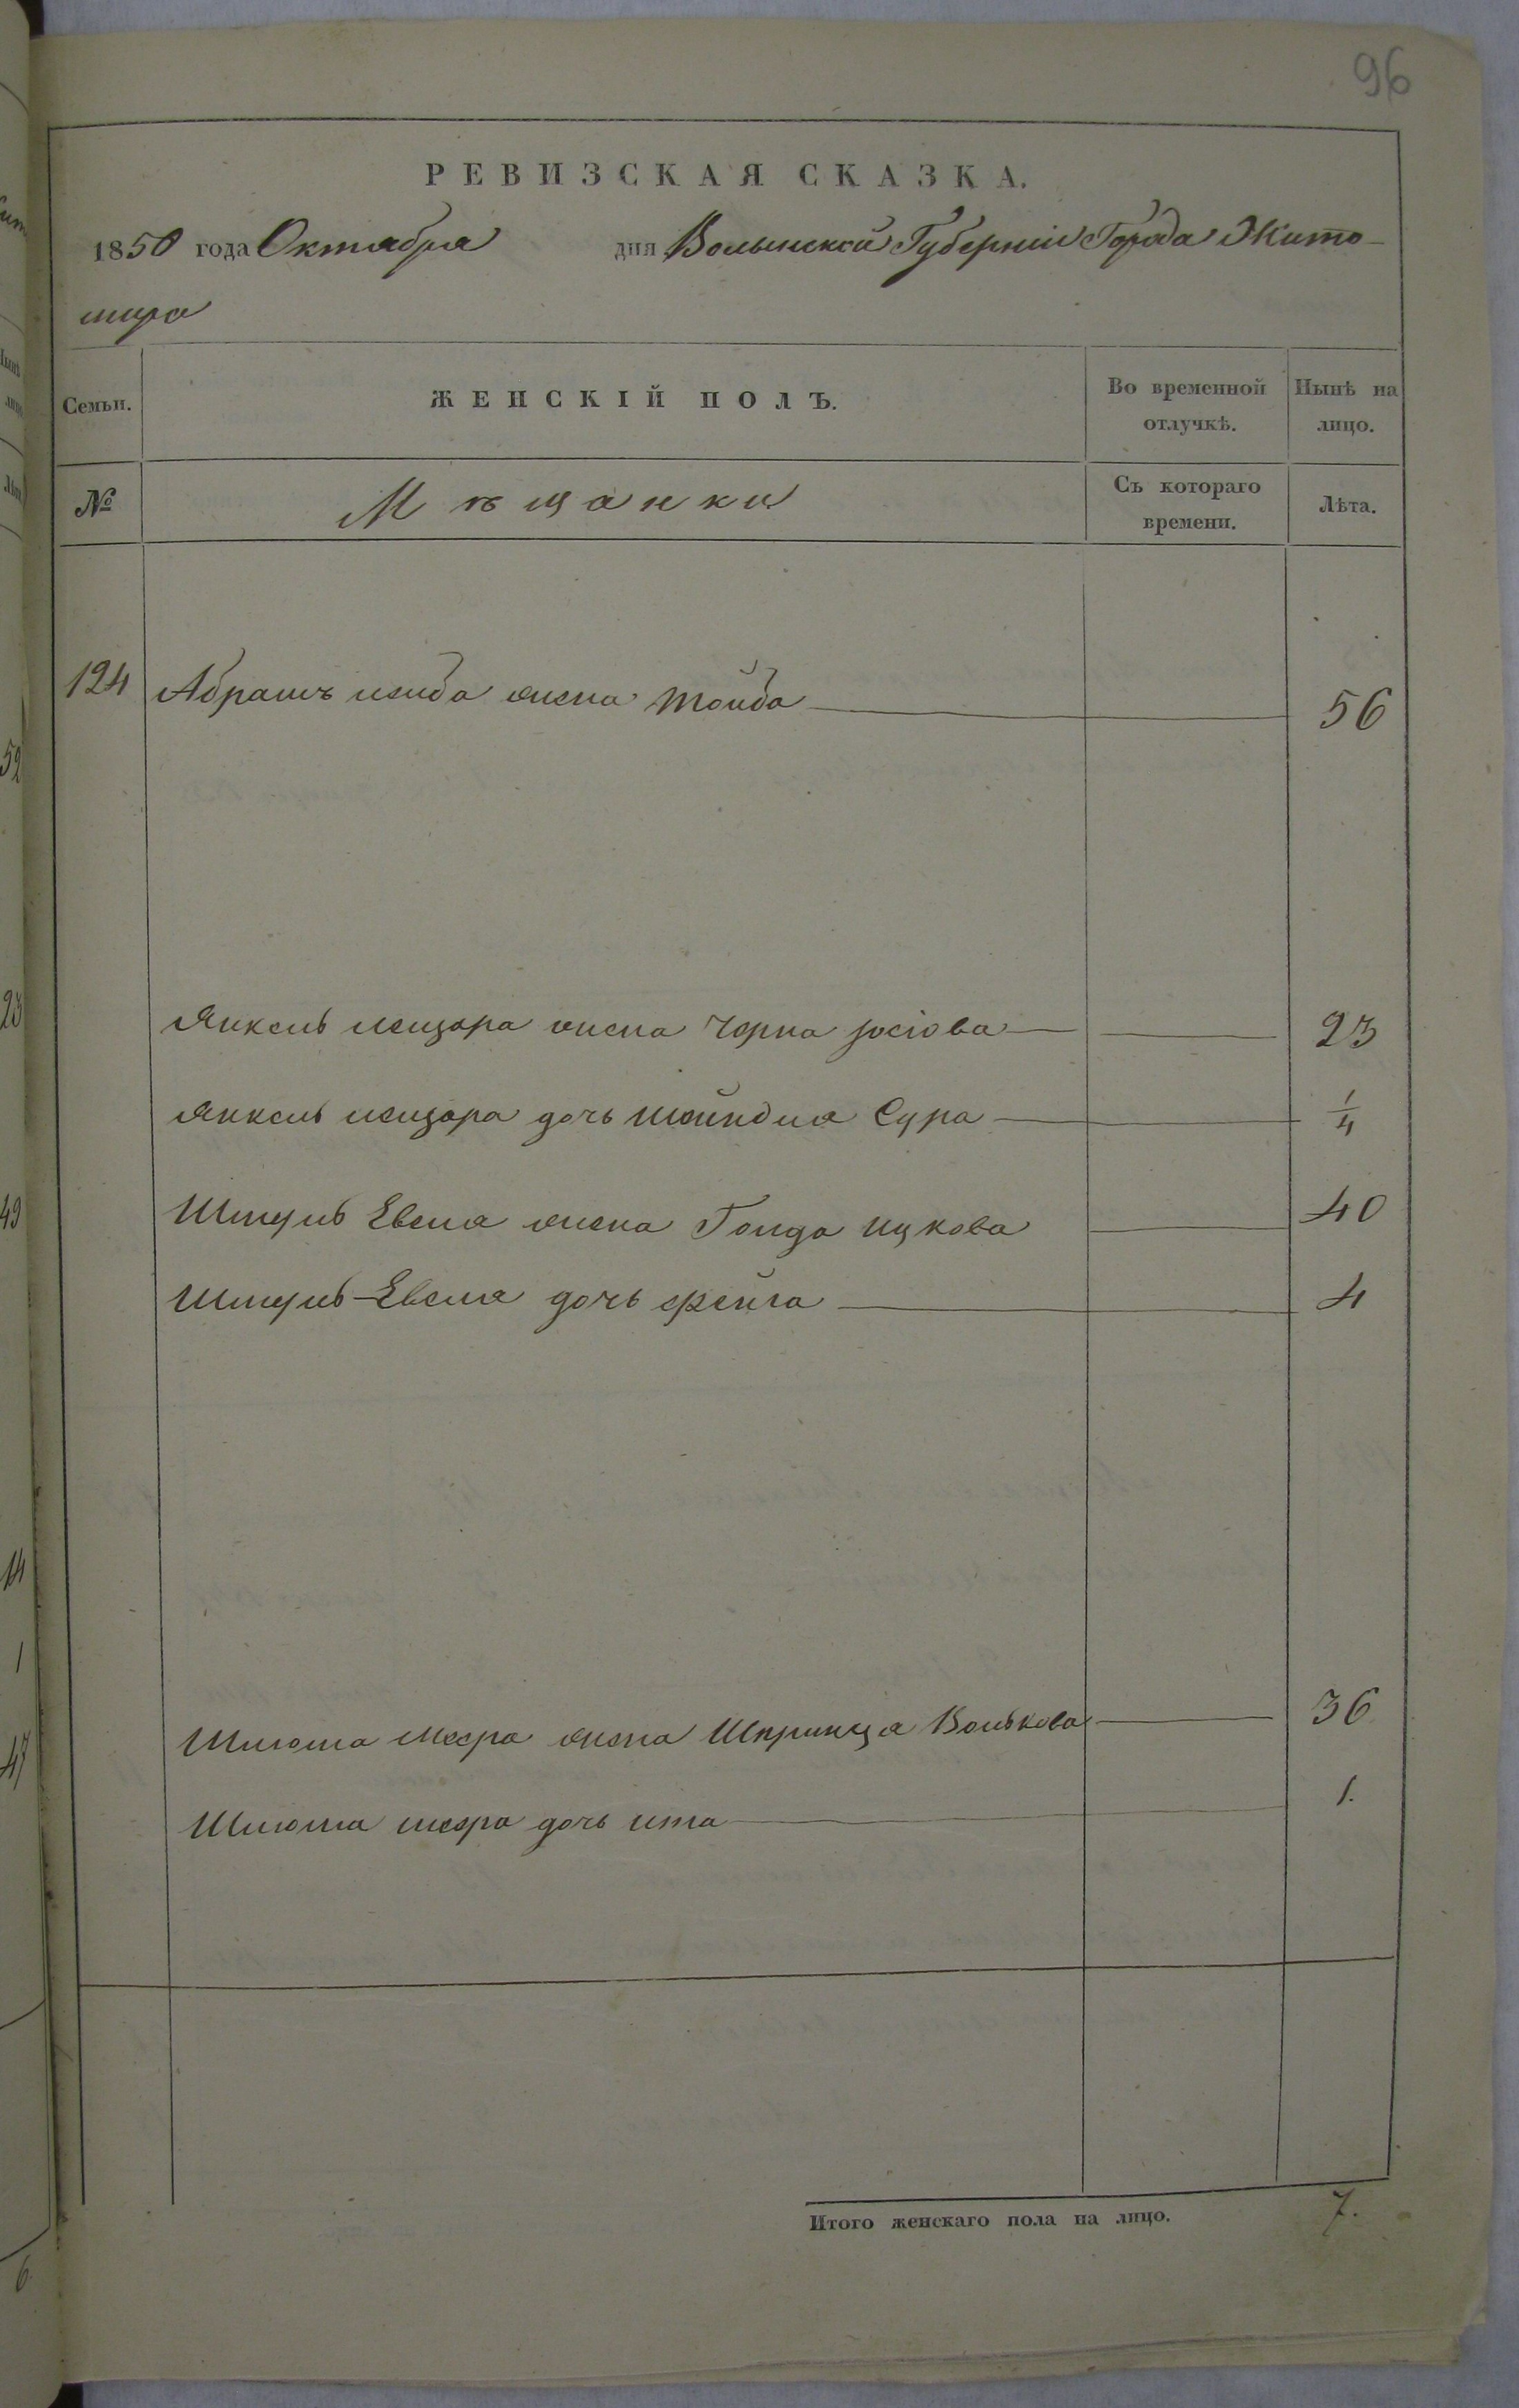 96
РЕВИЗСКАЯ СКАЗКА.
1850 года Октября дня Волынской Губерніи Города Жито-
мира
Семьи. ЖЕНСКІЙ ПОЛЪ. Во временной отлучкѣ. Нынѣ на лицо.
№ Мѣщанки Съ котораго времени. Лѣта.
124 Абрамъ лейба жена Тойба 56
Янкель лейзора жена Чорна Јосіова 23
Янкель лейзора дочь Шейндля Сура 1/4
Шмуль Евеля жена Голда ицкова 40
Шмуль-Евеля дочь фейга 4
Шлиома меера жена Шпринца Волькова 36
Шлиома меера дочь ита 1.
Итого женскаго пола на лицо. 7.